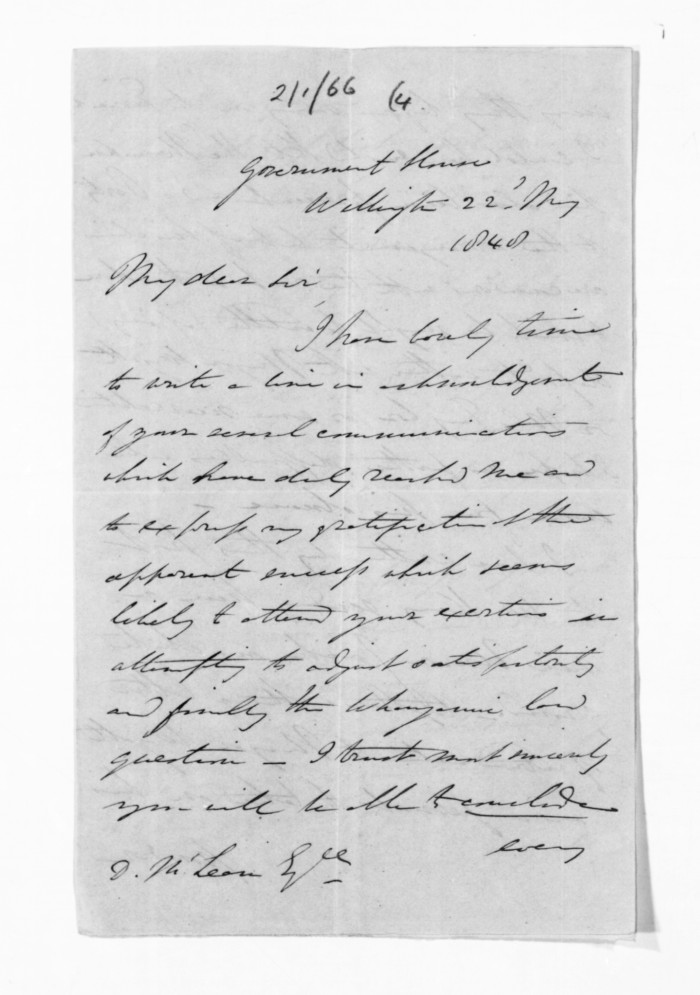 2/1/66 (4.
Government House
Wellington 22d May
1848
My dear Sir
I have barely time
to write a line in acknowledgment
of your several communications
which have duly reached me and
to express my gratification at the
apparent success which seems
likely to attend your exertions in
attempting to adjust satisfactorily
and finally the Whanganui land
question — I trust most sincerely
you will be able to conclude
every
D. McLean Esqre